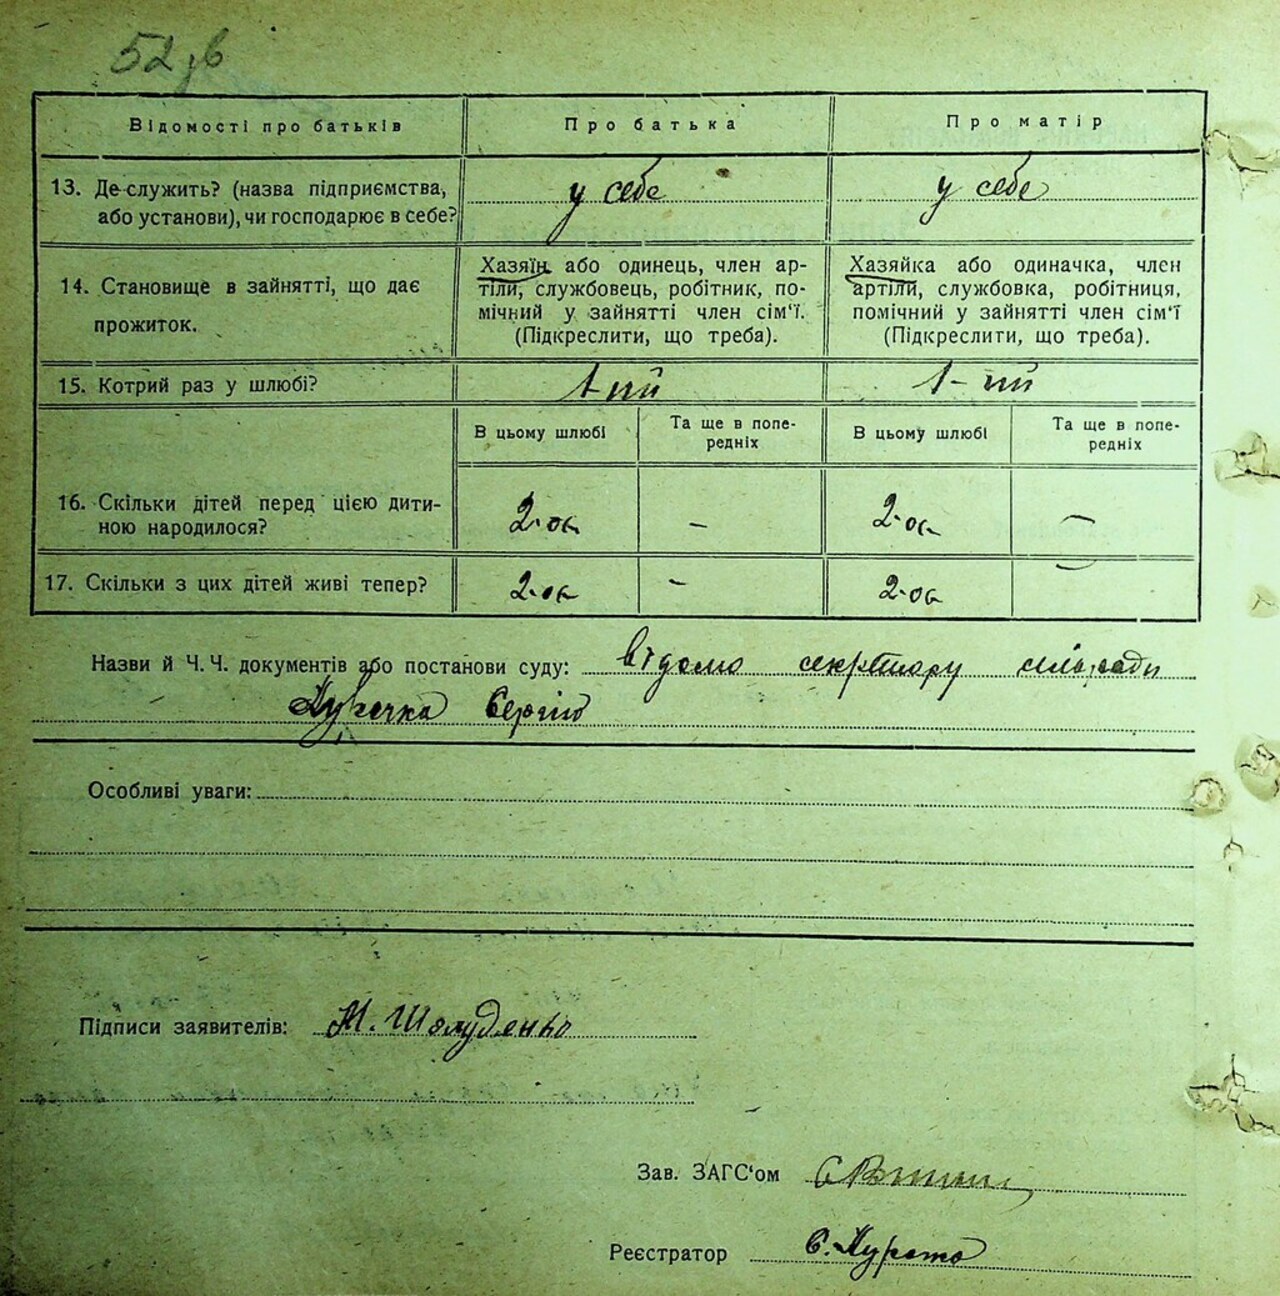 52 зв
Відомості про батьків
Про батька
Про матір
13. Де служить? (назва підприємства, або установи), чи господарює в себе?
у себе
у себе
14. Становище в зайнятті, що дає прожиток.
Хазяїн або одинець, член ар-
тіли, службовець, робітник, по-
мічний у зайнятті член сім'ї.
(Підкреслити, що треба).
Хазяйка або одиначка, член
артіли, службовка, робітниця,
помічний у зайнятті член сім'ї
(Підкреслити, що треба).
15. Котрий раз у шлюбі?
1-ий
1-ий
В цьому шлюбі
Та ще в попе-
редніх
В цьому шлюбі
Та ще в попе-
редніх
16. Скільки дітей перед цією дити-
ною народилося?
2-ох
–
2-ох
–
17. Скільки з цих дітей живі тепер?
2-ох
–
2-ох
–
Назви й Ч.Ч. документів або постанови суду: відомо секретару сільради
Сергій
Особливі уваги:
Підписи заявителів: М. Шолуденко
Зав. ЗАГС'ом
Реєстратор